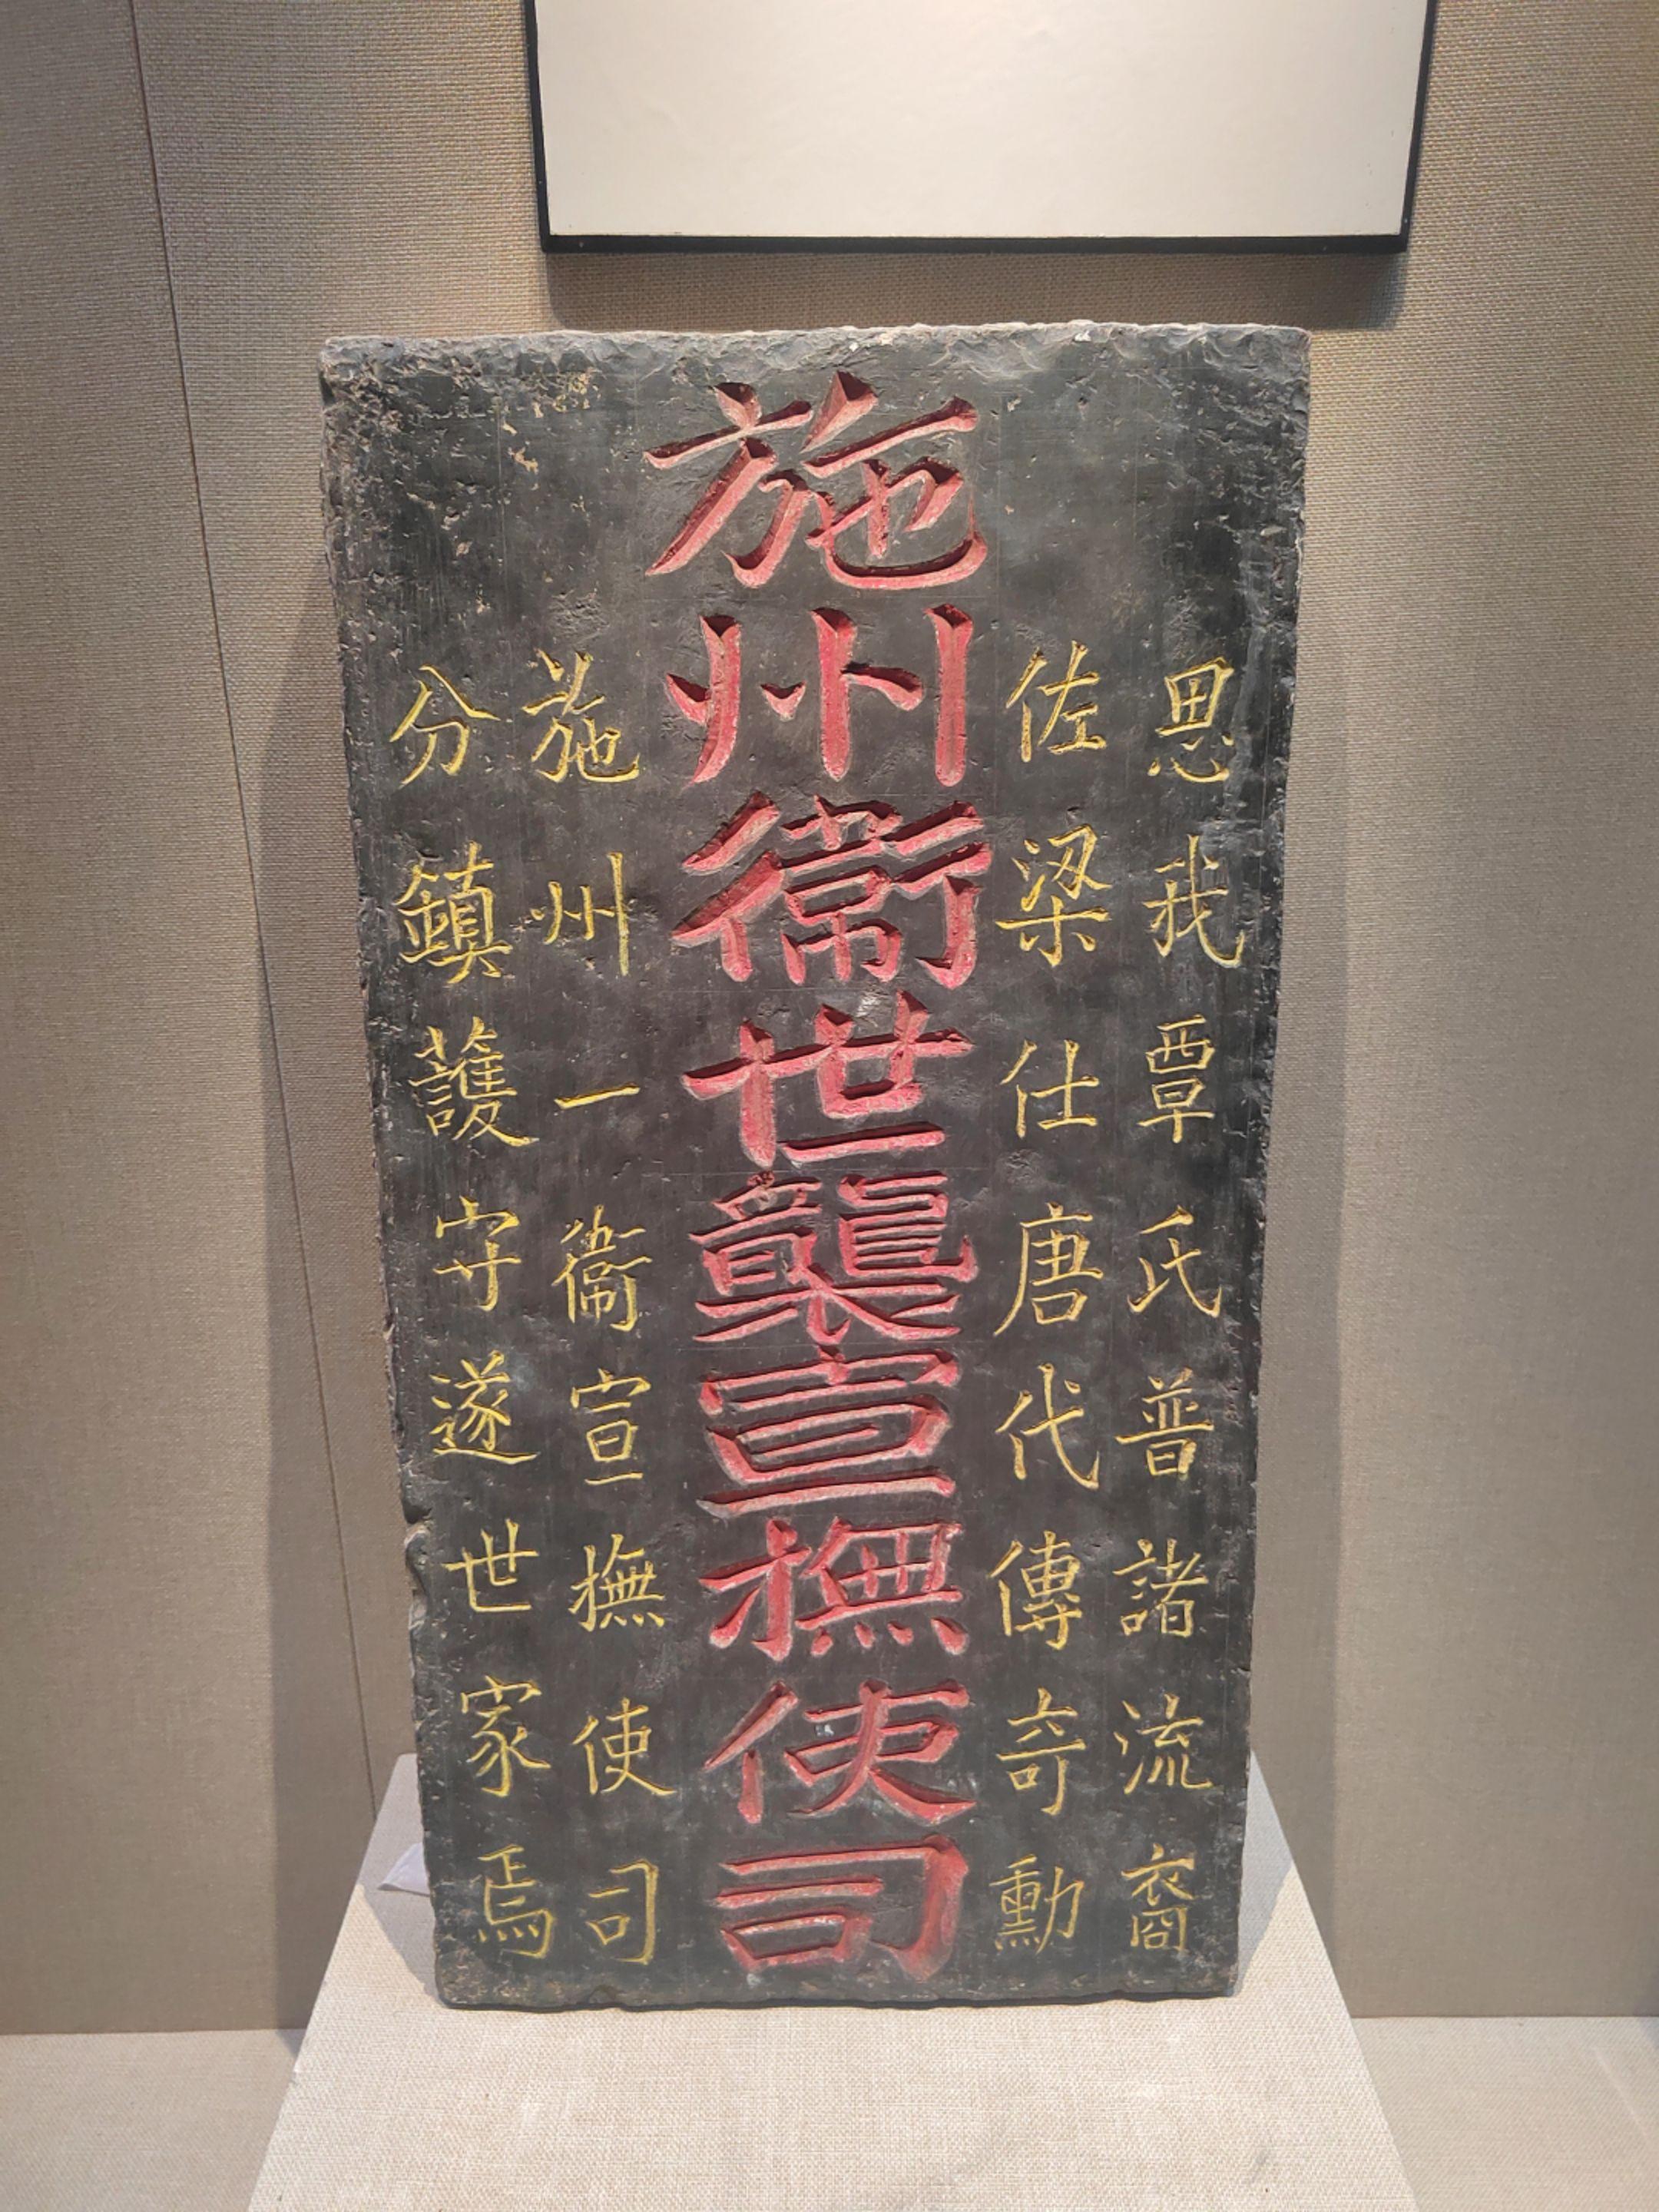 思我覃氏普諸流裔
佐梁仕唐代傳奇勳
施州衛世襲宣撫使司
施州一衛宣撫使司
分鎮護守遂世家焉